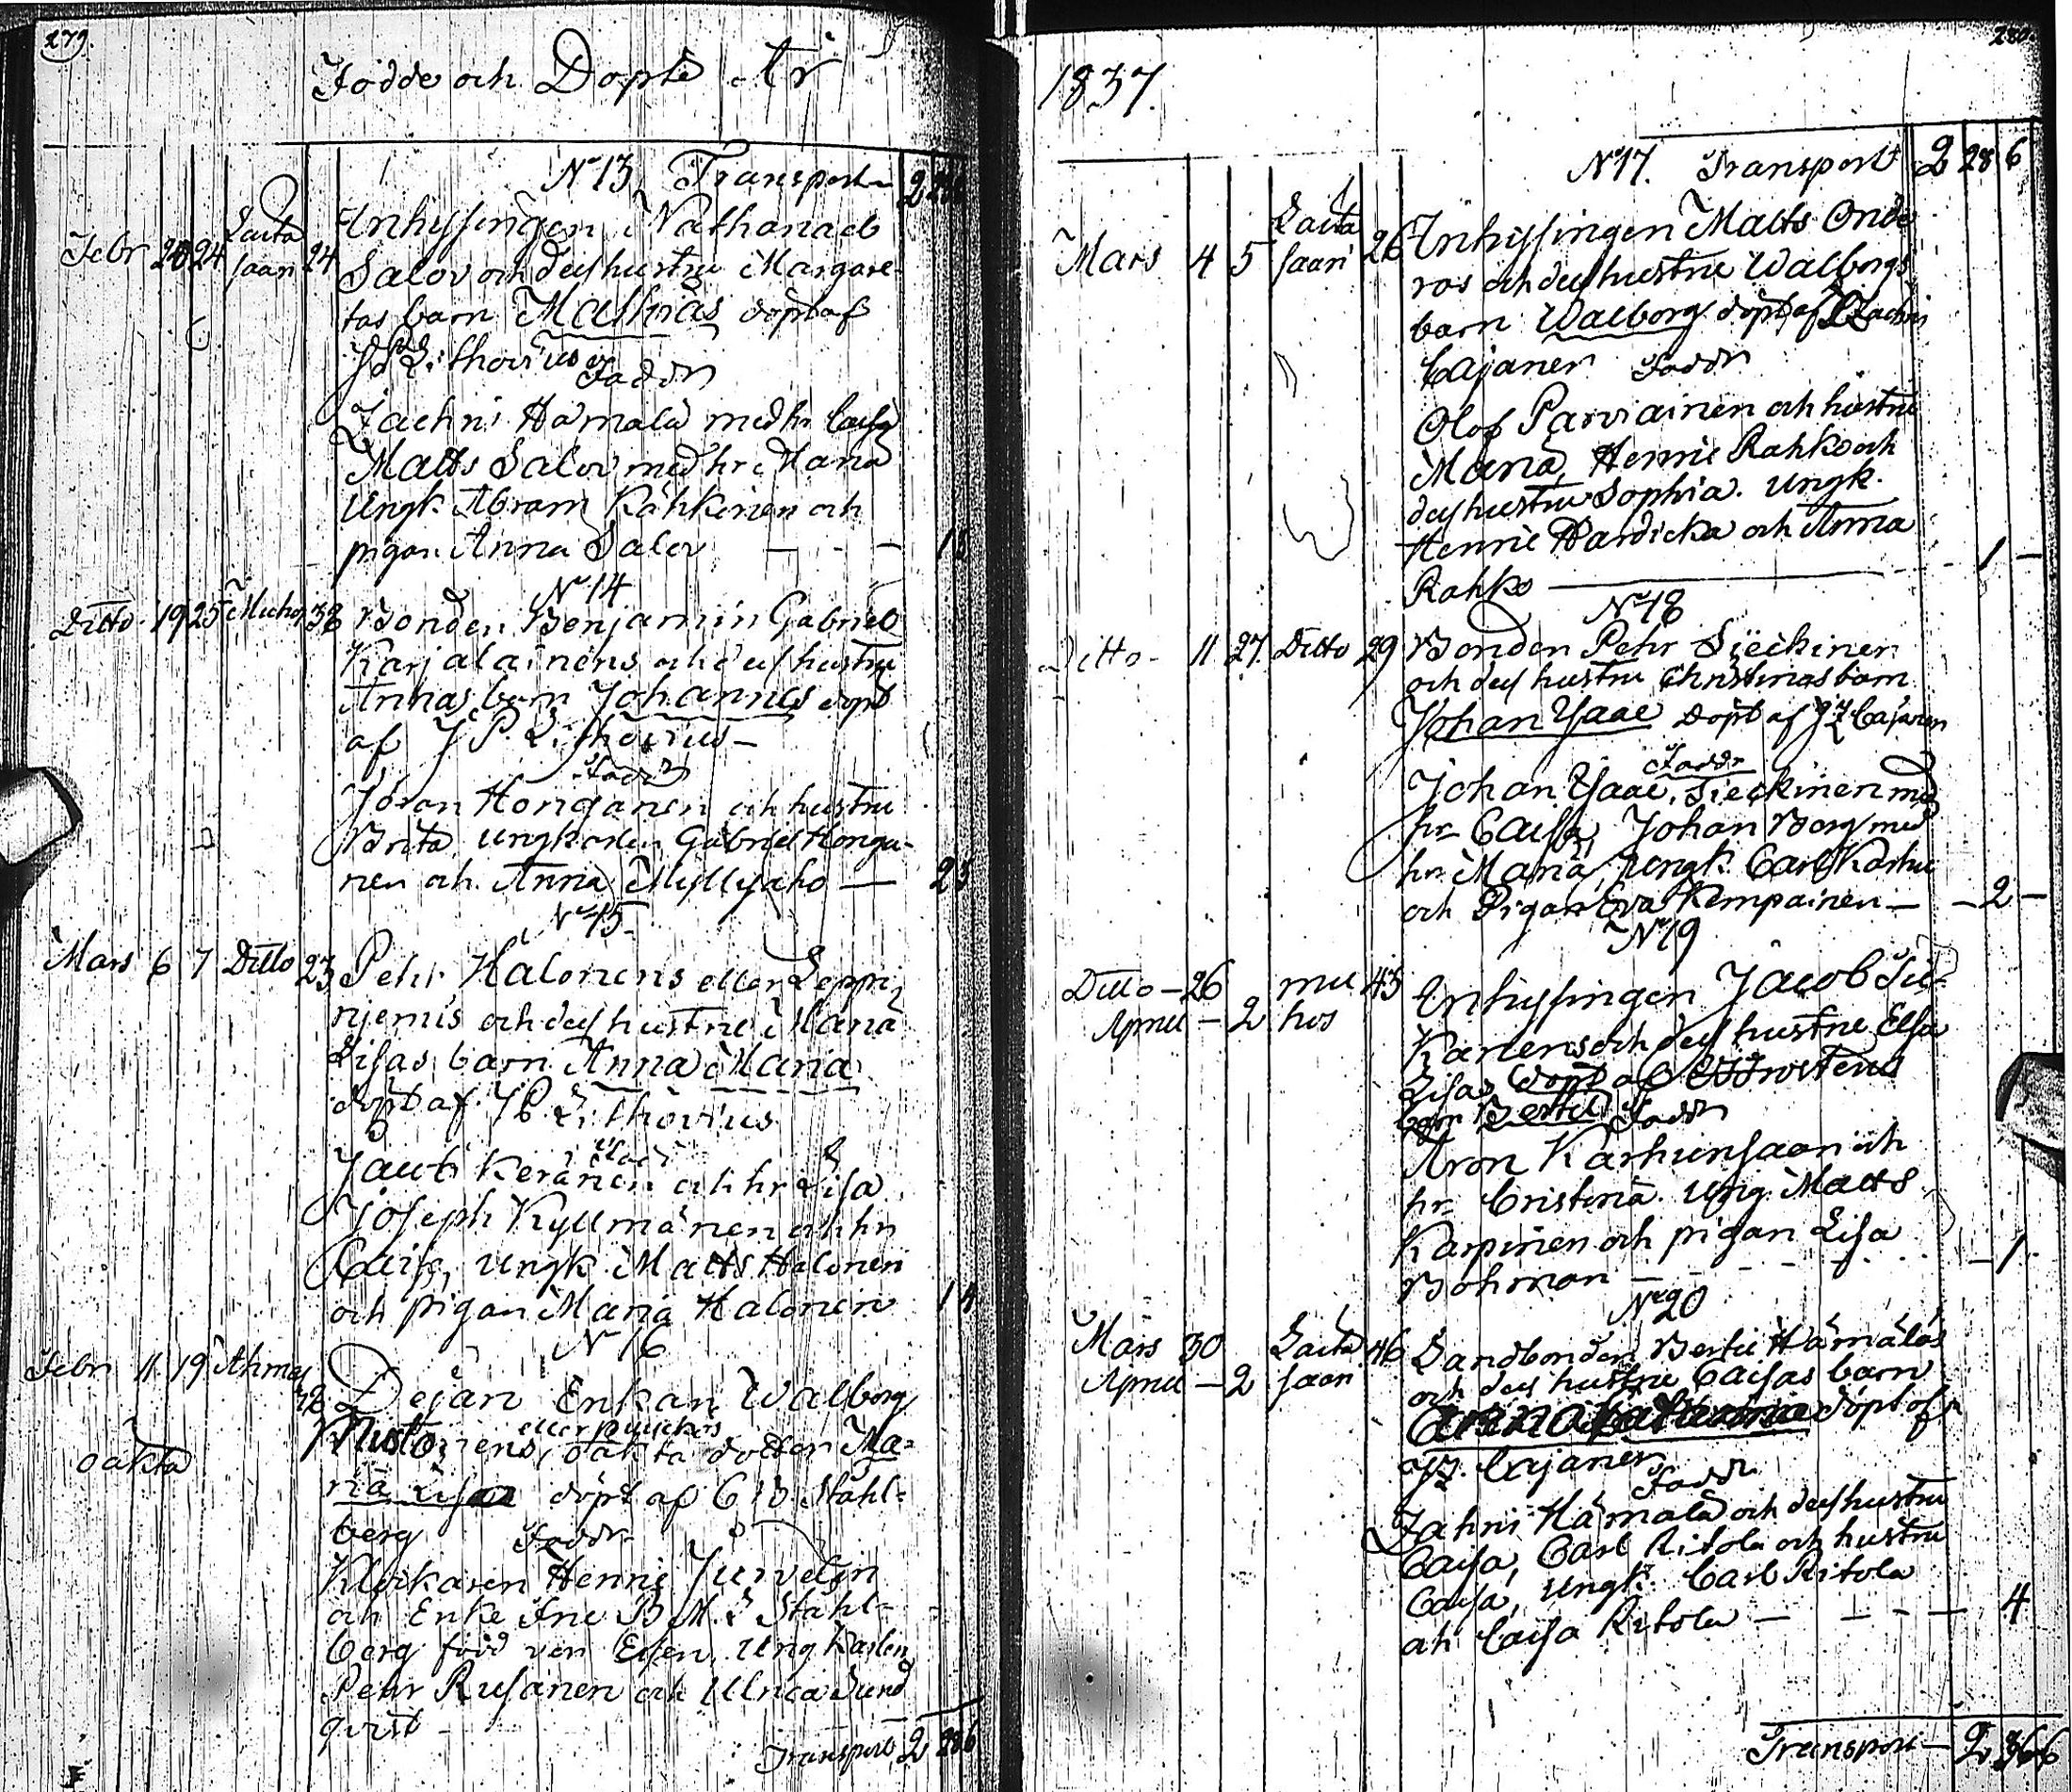 279.
Födde och Döpte År
N 13 Transport 2
Febr 20 24 Laita saari 24 Inhysingen Nathanael
Salov och dess hustru Margare-
tas barn Mathias döpt af
J P Lithovius
Faddr
Zachri Hämälä med hr Caisa
Matts Salov med hr Maria
Ungk. Abram Kähkinen och
pigan Anna Salov
N 14
Ditto 19 25 Muhos 38 Bonden Benjamin Gabriel
Karjalainens och dess hustru
Annas barn Johannes döpt
af J P Lithovius
Faddr
Jöran Honganen och hustru
Brita, ungkarlen Gabriel Honga-
nen och Anna Myllyaho 25
N 15
Mars 6 7 Ditto 23 Pehr Halonens eller Leppi-
niemis och dess hustru Maria
Lisas barn Anna Maria
döpt af J P Lithovius
Fadd
Jauti Keränen och hr Lisa
Joseph Kyllmänen och hr
Caisa, ungk. Matts Halonen
och pigan Maria Halonen 14
N 16
Febr 11 19 42 Dejan Enkan Walborg
eller
oäkta
nens, oäkta dotter Ma-
ria Lisa döpt af C W Ståhl-
berg Faddr
Klockaren Henric Jurvelin
och Enke Fru B M. Ståhl-
berg född von Essen, Ungkarlen
Pehr Rusanen och Ulrica Sund
qvist
Transport 2 28 6
280.
1837.
N 17. Transport 2 28 6
Mars 4 5 Laita saari 26 Inhysingen Matts Onde
ros och dess hustru Walborgs
barn Walborg döpt af Zachri
Cajaner Faddr
Olof Parviainen och hustru
Maria, Henric Rahko och
dess hustru Sophia. Ungk.
Henric Hardicka och Anna
Rahko 1
N 18
Ditto 11 27 Ditto 29 Bonden Pehr Sieckinen
och dess hustru Christinas barn
Johan Isaac döpt af J Z Cajaner
Faddr
Johan Isaac Sieckinen med
hr Caisa, Johan Borg med
hr Maria, Ungk. Carl Karhu
och Pigan Eva Kempainen 2
N 19
Ditto 26 mu 43 Inhysingen Jacob Tie-
April 2 hos
Kanens och dess hustru Elsa
Lisas döpt af
barn Bertil Faddr
Aron Karhunsaari och
hr Cristina. Ung. Matts
Karpinen och pigan Lisa
Bohman 1
N 20
Mars 30 Laita 46 Landbonden Bertil Hämäläs
April 2 saari
och dess hustru Caisas barn
döpt af
J Z. Cajaner
Faddr
Zahri Hämälä och dess hustru
Caisa, Carl Ritola och hustru
Caisa, Ungk. Carl Ritola
och Caisa Ritola 4
Transport 2 36 6